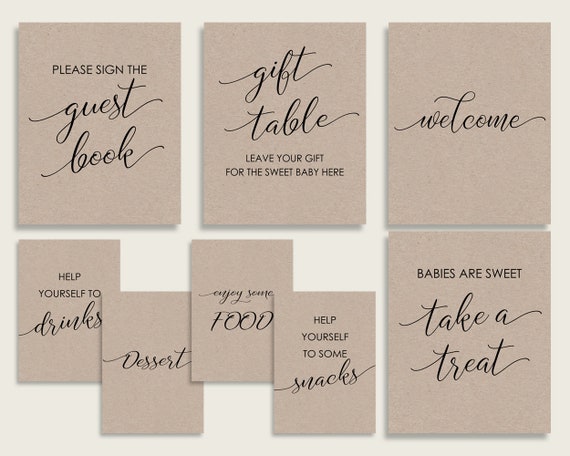 PLEASE SIGN THE
guest
book
gift
table
LEAVE YOUR GIFT
FOR THE SWEET BABY HERE
welcome
HELP
YOURSELF TO
drinks
Dessert
enjoy some
FOOD
HELP
YOURSELF
TO SOME
snacks
BABIES ARE SWEET
take a
treat